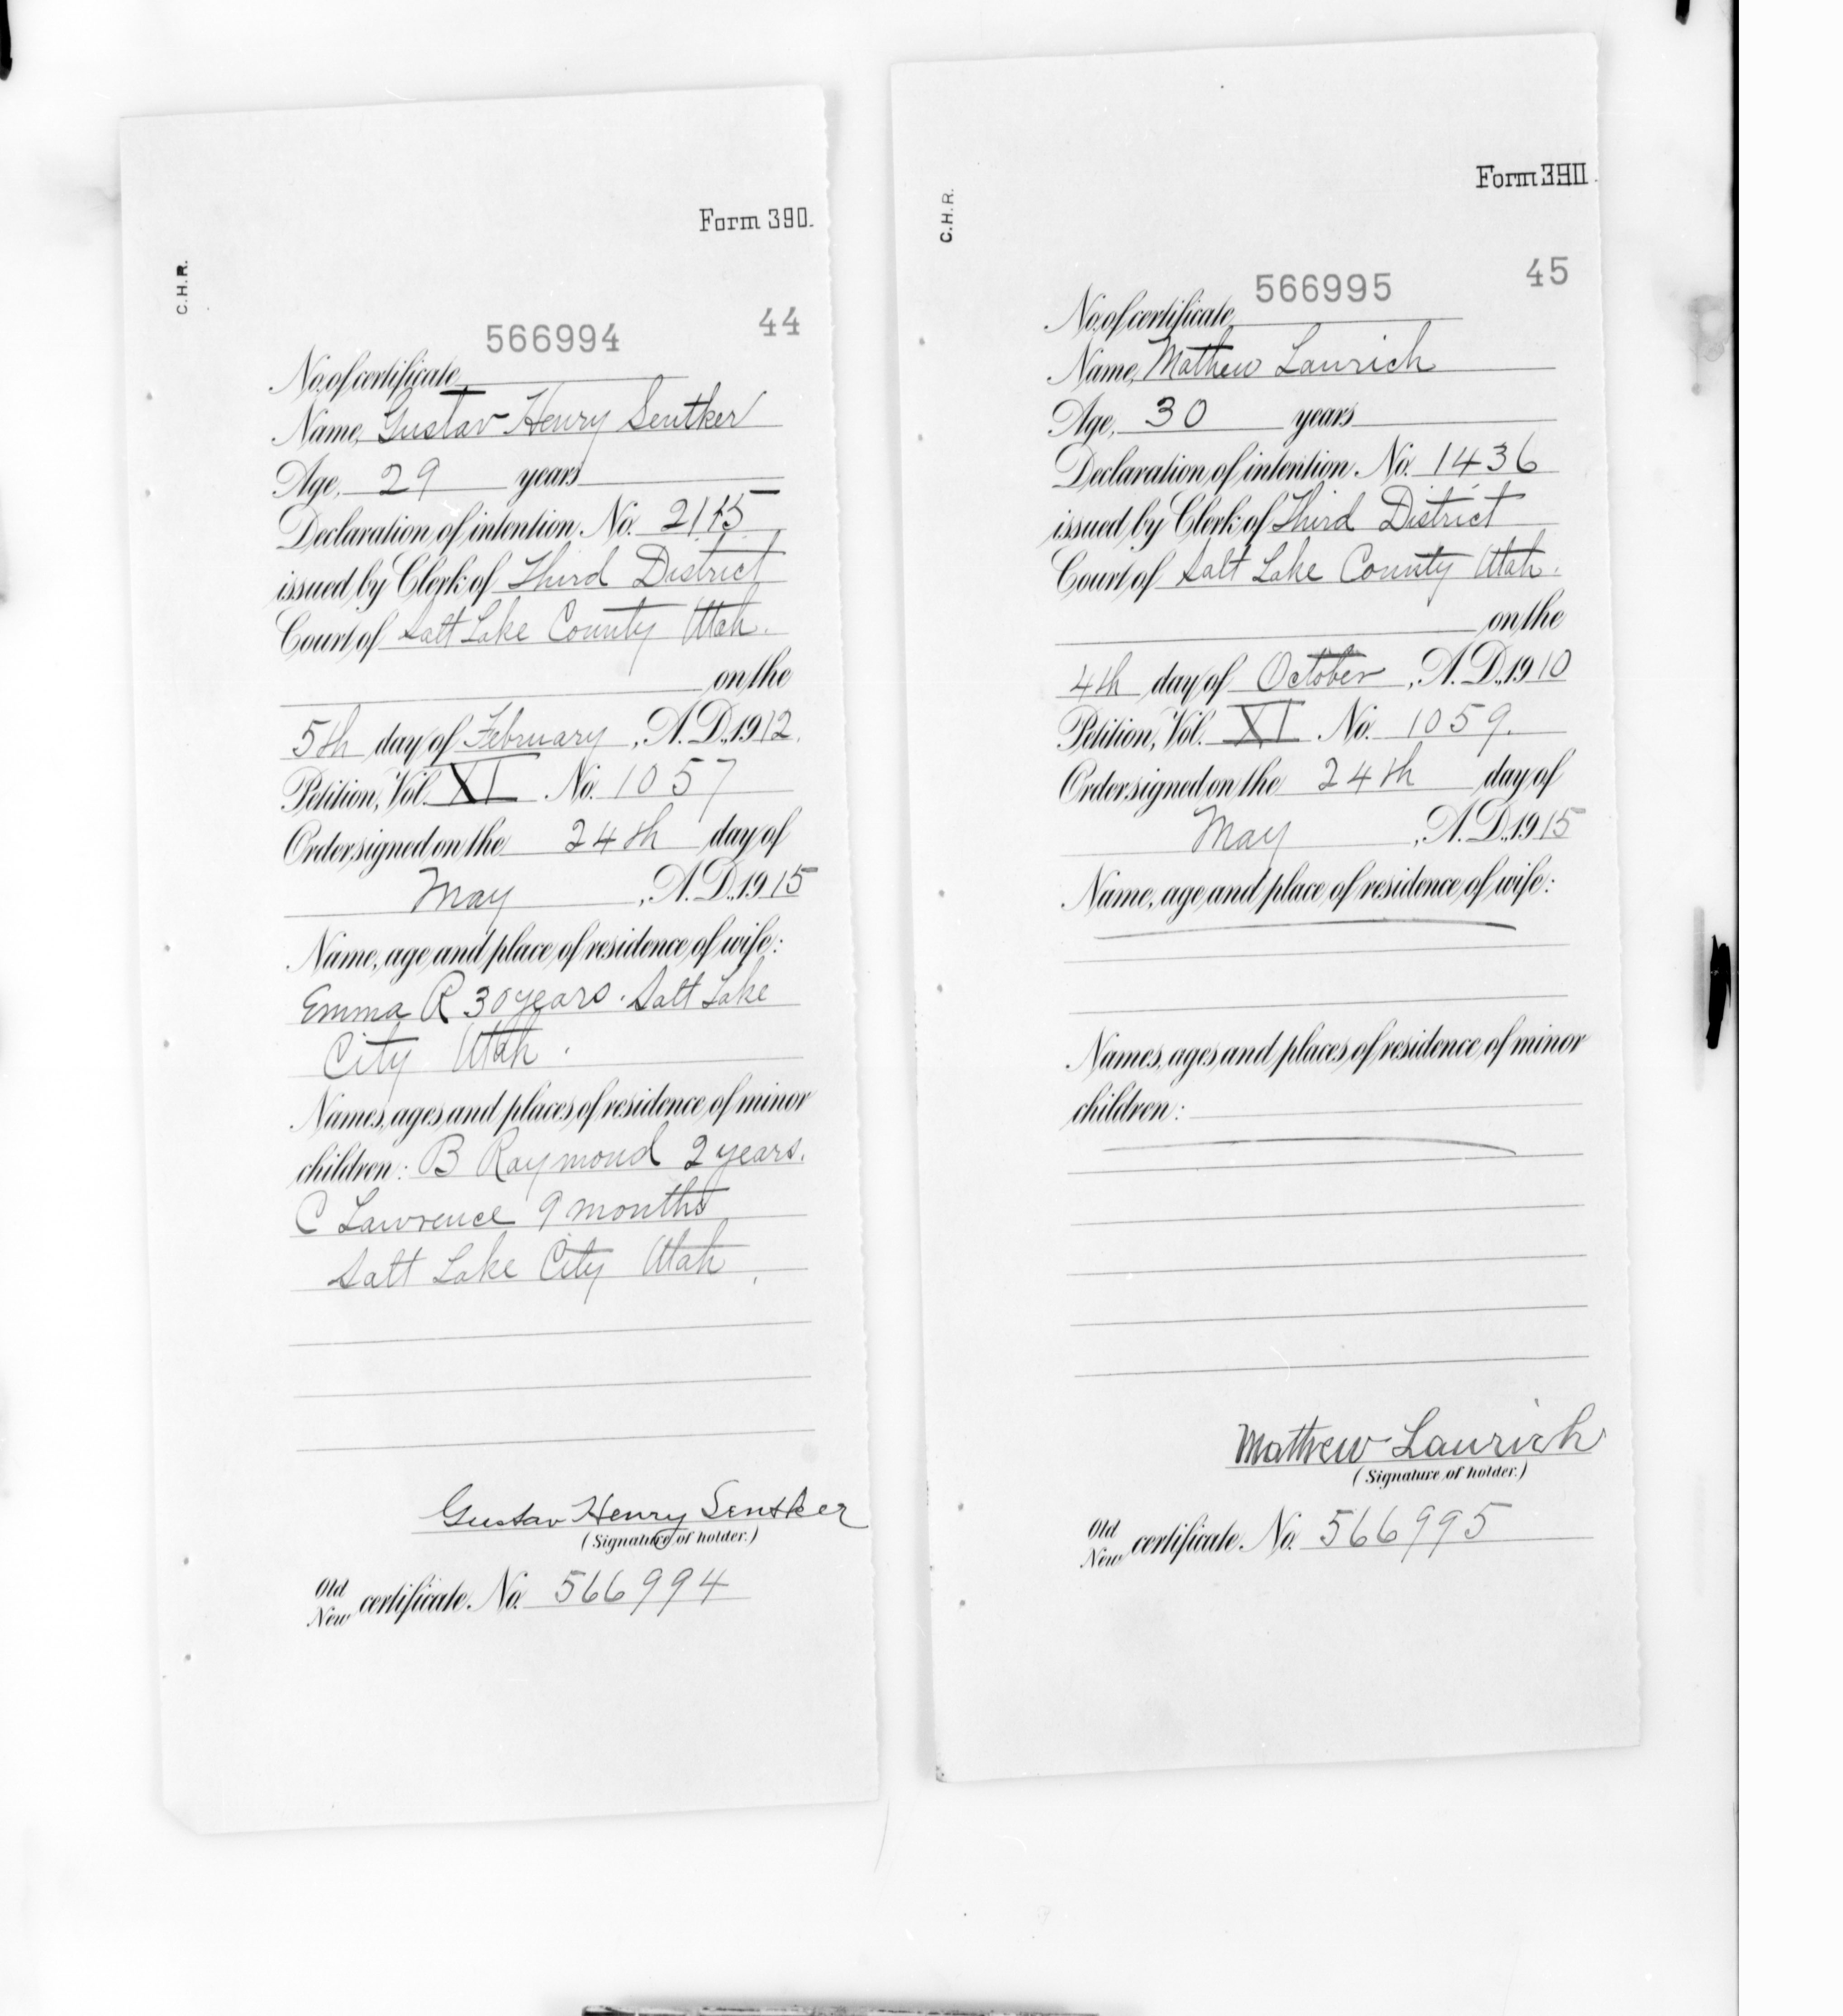 C.H.R.
Form 390.
44
566994
No. of certificate
Name, Gustav Henry Sentker
Age, 29 years
Declaration of intention No.
issued by Clerk of Third District
Court of Salt Lake County Utah.
on the
5th day of February, A.D. 1912.
Petition, Vol. XI No. 1057
Order signed on the 24th day of
May, A.D. 1915
Name, age and place of residence of wife:
Emma R 30 years. Salt Lake
City Utah.
Names, ages and places of residence of minor
children: B Raymond 2 years.
C Lawrence 9 months
Salt Lake City Utah,
Gustav Henry Sentker
(Signature of holder.)
Old
New certificate No. 566994
C.H.R.
Form 390.
45
566995
No. of certificate
Name, Mathew Laurich
Age, 30 years
Declaration of intention No. 1436
issued by Clerk of Third District
Court of Salt Lake County Utah.
on the
4th day of October, A.D. 1910
Petition, Vol. XI No. 1059.
Order signed on the 24th day of
May, A.D. 1915
Name, age and place of residence of wife:
Names, ages and places of residence of minor
children:
Mathew Laurich
(Signature of holder.)
Old
New certificate No. 566995